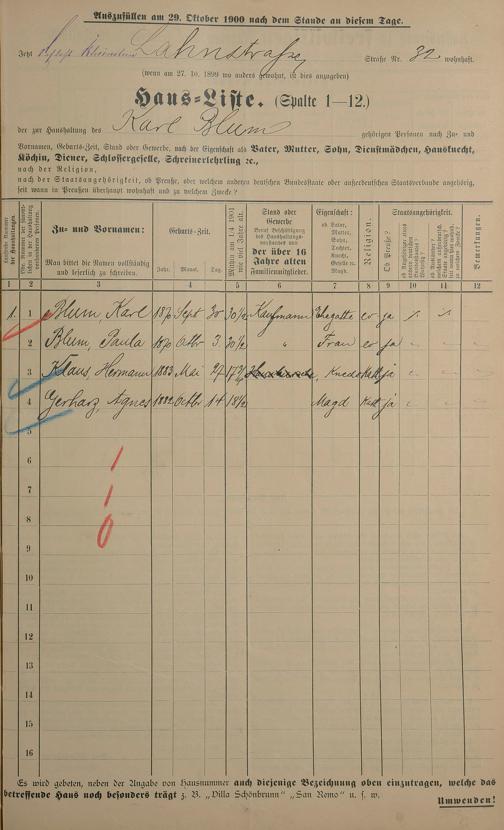 Auszufüllen am 29. Oktober 1900 nach dem Stande an diesem Tage.
Jetzt Lahnstraße Straße Nr. 32 wohnhaft.
(wenn am 27. 10. 1899 wo anders gewohnt, ist dies anzugeben)
Haus-Liste. (Spalte 1—12.)
der zur Haushaltung des Karl Blum gehörigen Personen nach Zu- und
Vornamen, Geburts-Zeit, Stand oder Gewerbe, nach der Eigenschaft als Vater, Mutter, Sohn, Dienstmädchen, Hausknecht,
Köchin, Diener, Schlossergeselle, Schreinerlehrling ꝛc.,
nach der Religion,
nach der Staatsangehörigkeit, ob Preuße, oder welchem anderen deutschen Bundesstaate oder außerdeutschen Staatsverbande angehörig,
seit wann in Preußen überhaupt wohnhaft und zu welchem Zwecke?
Zu- und Vornamen:
Man bittet die Namen vollständig
und leserlich zu schreiben.
Geburts-Zeit.
Jahr. Monat. Tag.
Mithin am 1/4 1901
wie viel Jahre alt.
Stand oder
Gewerbe
der über 16
Jahre alten
Familienmitglieder.
Eigenschaft:
ob Vater,
Mutter,
Sohn,
Tochter,
Knecht,
Geselle u.
Magd.
Religion.
Staatsangehörigkeit.
Ob Preuße?
Bemerkungen.
1 2 3 4 5 6 7 8 9 10 11 12
1. 1 Blum, Karl 1870 Sept 30 30 1/2 Kaufmann Ehegatte ev ja
2 Blum, Paula 1870 Oktbr 3. 30 1/2 " Frau ev ja
3 Klaus, Hermann 1883 Mai 27 Kath ja
4 Gerharz, Agnes 1882 Octbr 14 18 1/2 Magd Kath ja
5
6
7
8
9
10
11
12
13
14
15
16
1
1
0
Es wird gebeten, neben der Angabe von Hausnummer auch diejenige Bezeichnung oben einzutragen, welche das
betreffende Haus noch besonders trägt z. B. „Villa Schönbrunn" „San Remo" u. s. w.
Umwenden!